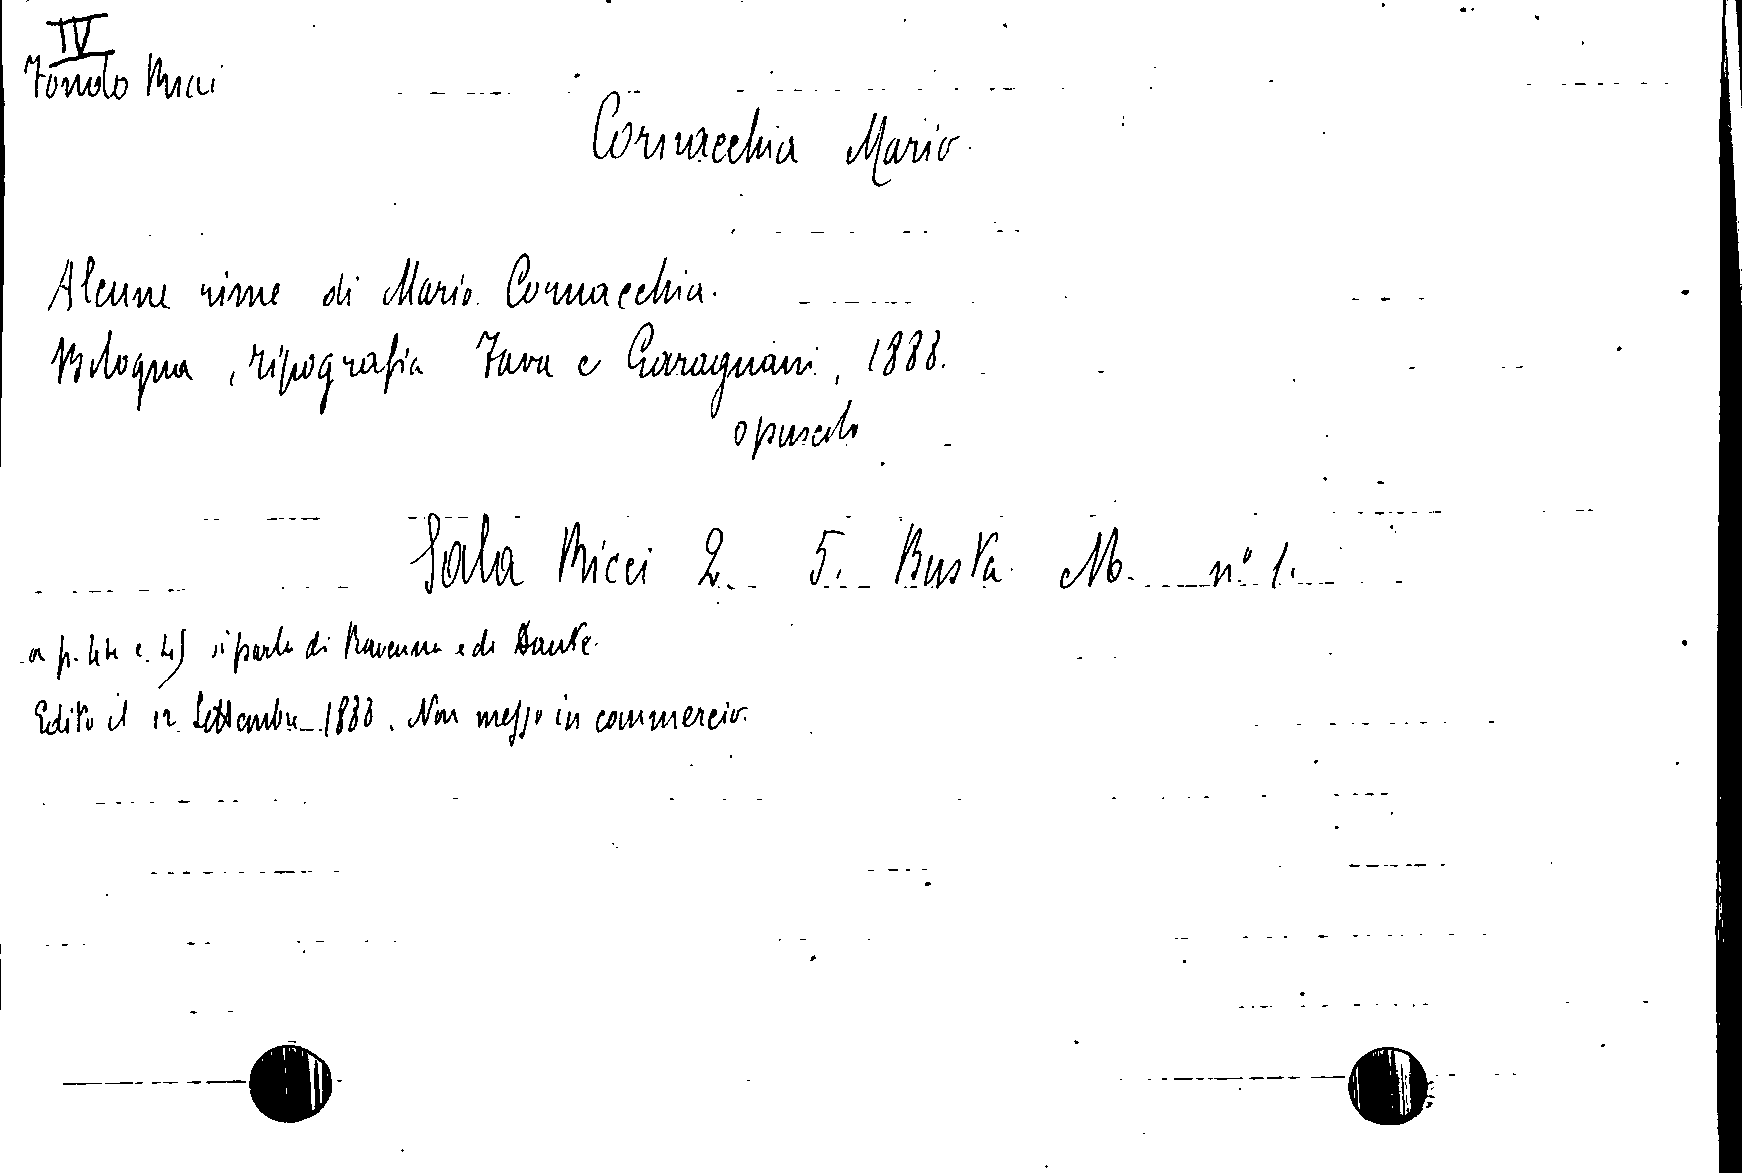 IV
Fondo Ricci
Cornacchia Mario.
Alcune rime di Mario Cornacchia.
Bologna, tipografia Fava e Garagnani, 1888.
opuscolo
Sala Ricci 2. 5. Busta M. n° 1.
a p. 44 e 45 si parla di Ravenna e di Dante.
Edito il 12 Settembre 1888. Non messo in commercio.